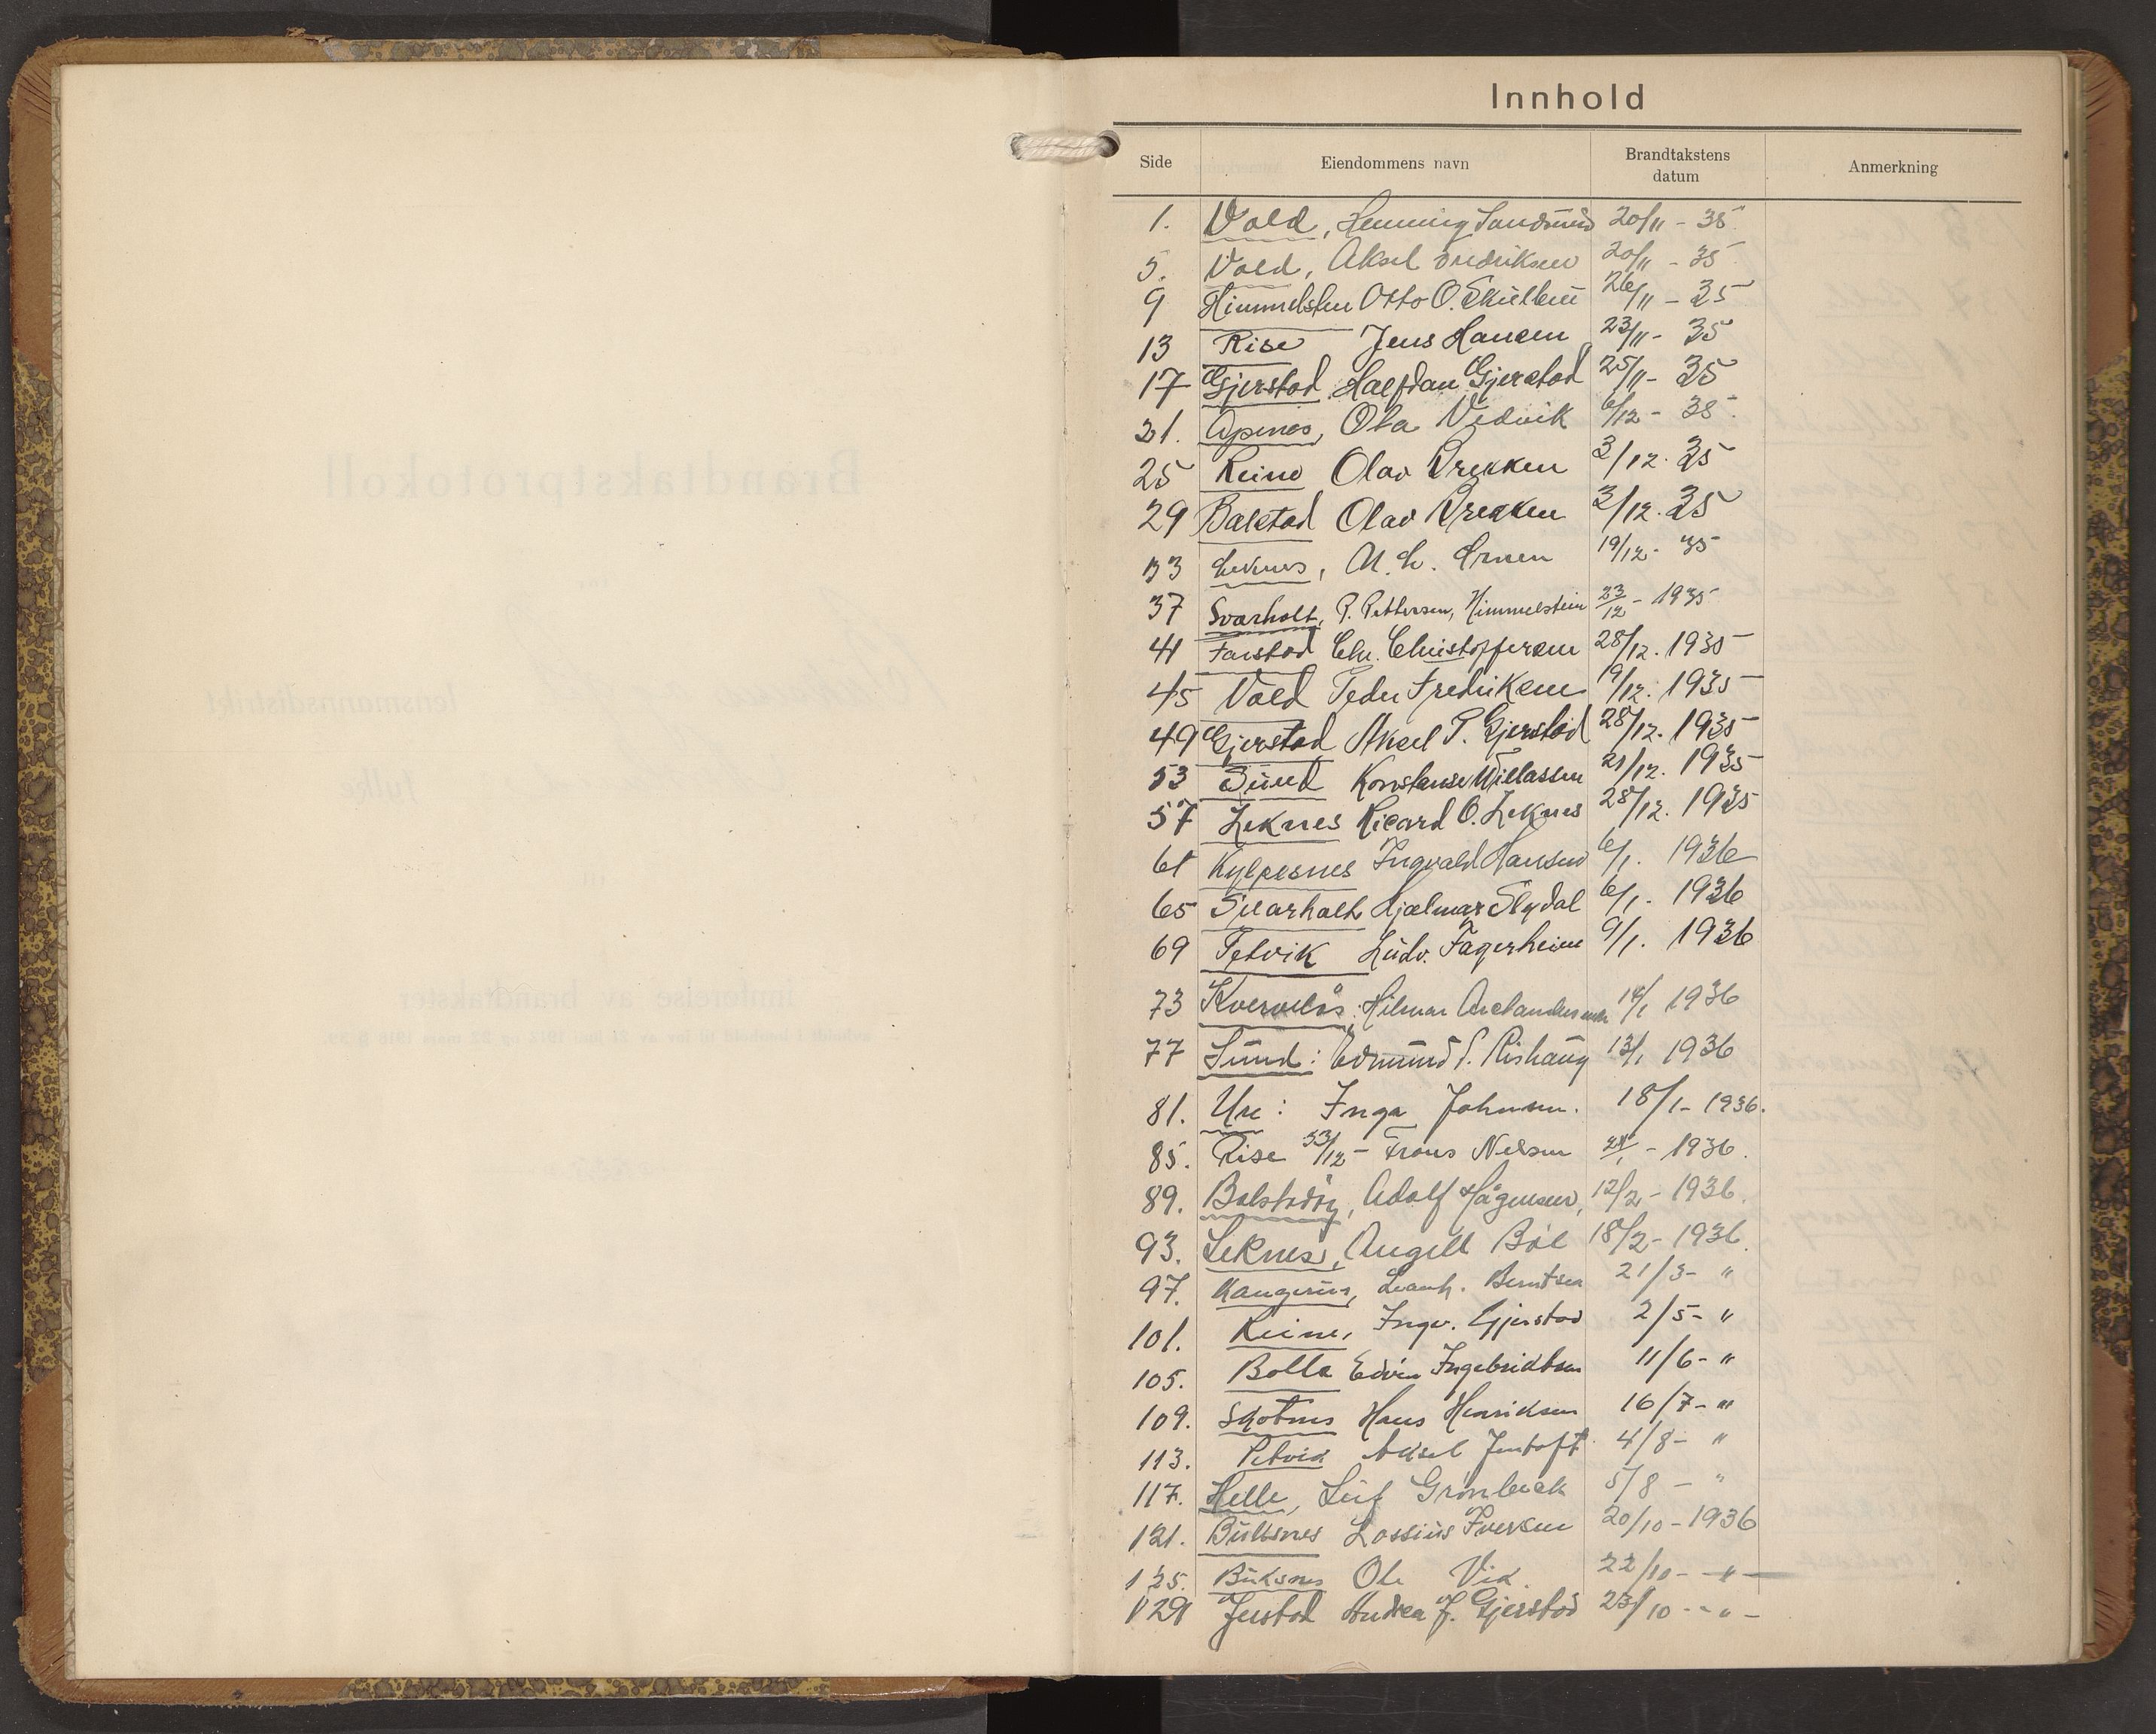 Innhold
Side Eiendommens navn Brandtakstens datum Anmerkning
1. Vold, Henning Sandsund 20/11 - 35
5. Vold, Aksel Fredriksen 20/11 - 35
9 Himmelsten Otto O. 26/11 - 35
13 Rise Jens Hansen 23/11 - 35
17 Gjerstad Halfdan Gjerstad 25/11 - 35
21. Apenes, Ola Vedvik 6/12 - 35
25 Reine Olav Brekken 3/12. 35
29 Balstad Olav Brekken 3/12. 35
33 Leknes, 19/12 - 35
37 Svarholt, P. Pettersen, Himmelstein 23/12 - 1935
41 Farstad Chr. Christoffersen 28/12. 1935
45 Vold Peder Fredriksen 19/12. 1935
49 Gjerstad Aksel P. Gjerstad 28/12. 1935
53 Sund Konstanse Willassen 21/12. 1935
57 Leknes Ricard O. Leknes 28/12. 1935
61 Kylpesnes Ingvald Hansen 6/1. 1936
65 Svarholt Hjalmar Slydal 6/1. 1936
69 Petvik Ludv. Fagerheim 9/1. 1936
73 Hilmar 14/1 1936
77 Sund: Edmund S. Rishaug 13/1 1936
81. Ure: Inga Johnsen. 18/1 - 1936.
85. Rise 33/12 - Frans Nelson - 1936.
89. Balstadøy, Adolf Hågensen, 12/2 - 1936.
93. Leknes, Angell Bøe 18/2 - 1936.
97. Haugerus, Leonh. Berntsen 21/3 - "
101. Reine, Ingv. Gjerstad 2/5 - "
105. Bolle Edvin Ingebridtsen 11/6 - "
109. Skotnes Hans Henriksen 16/7 - "
113. Petvik Aksel Jentoft 4/8 - "
117. Helle, Leif Grønbeck 5/8 - "
121. Buksnes Lossius Iversen 20/10 - 1936
125. Buksnes Ole Vik 22/10 - " -
129 Jerstad Andrea J. Gjerstad 23/10 - " -
Brandtakstprotokoll
lensmannsdistrikt
fylke
til
innførelse av brandtakster